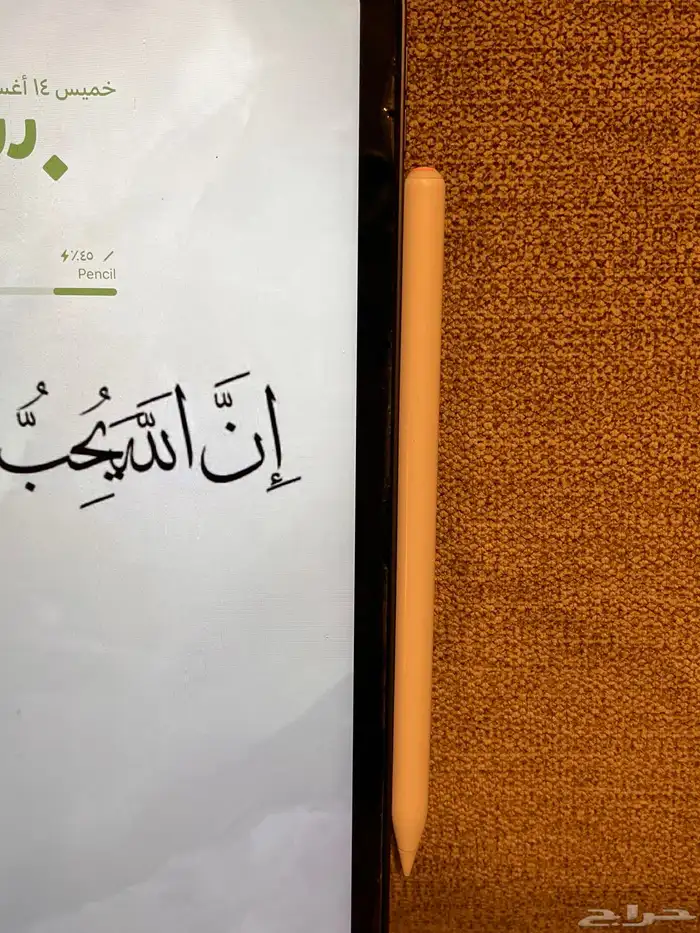 خميس ١٤
٪٤٥
Pencil
إِنَّ اللَّهَ يُحِبُّ
حراج